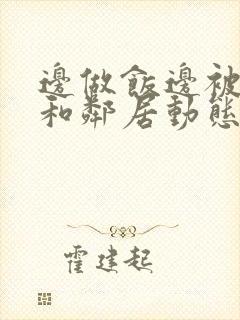 邊做飯邊被
和鄰居動態
霍建起